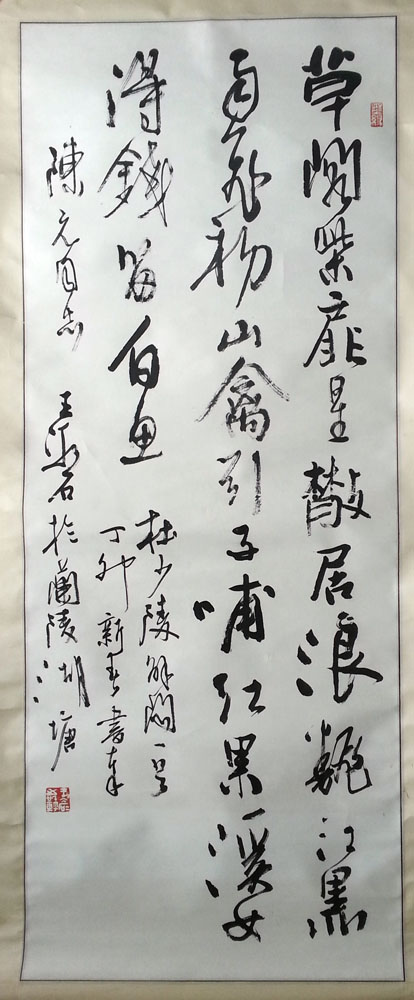 草閣柴扉星散居浪飜江黑
雨飛初山禽引子哺红果溪女
得錢留白魚
杜少陵解悶一首
丁卯新春書奉
陳元同志 王石於蘭陵湖塘